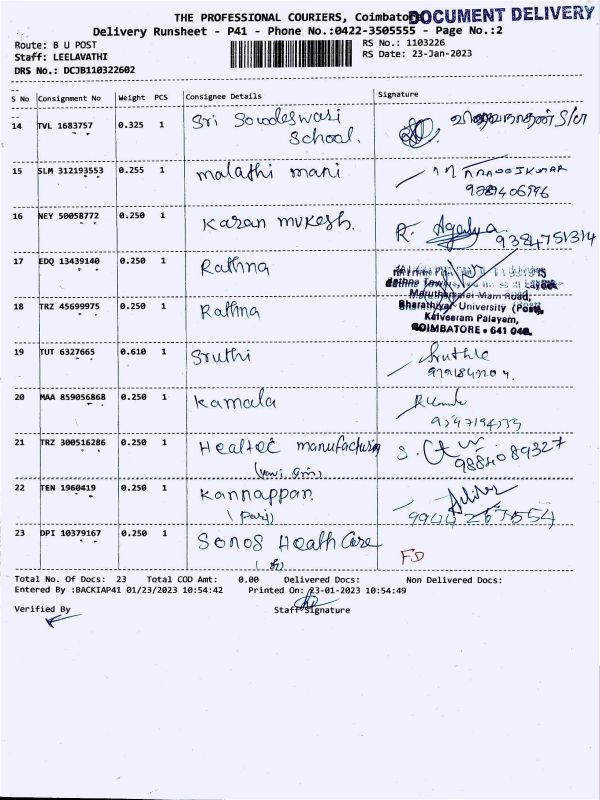 THE PROFESSIONAL COURIERS, Coimbato
DOCUMENT DELIVERY
Delivery Runsheet - P41 - Phone No.:0422-3505555 - Page No.:2
Route: B U POST
RS No.: 1103226
Staff: LEELAVATHI
RS Date: 23-Jan-2023
DRS No.: DCJB110322602
S No Consignment No Weight PCS Consignee Details Signature
14 TVL 1683757 0.325 1 Sri Sowdeswari
School.
15 SLM 312193553 0.255 1 malathi mani
16 NEY 50058772 0.250 1 Karan mukesh.
R. Agalya
9384751314
17 EDQ 13439140 0.250 1 Rathna
18 TRZ 45699975 0.250 1 Rathna
Maruthamalai Main Road,
Bharathiyar University (Post),
Kalveeram Palayam,
COIMBATORE • 641 046.
19 TUT 6327665 0.610 1 Sruthi
20 MAA 859056868 0.250 1 Kamala
21 TRZ 300516286 0.250 1 Healtec manufacturing
9884089327
22 TEN 1960419 0.250 1 Kannappan
23 DPI 10379167 0.250 1 Sonos Health Care
FD
Total No. Of Docs: 23 Total COD Amt: 0.00 Delivered Docs: Non Delivered Docs:
Entered By :BACKIAP41 01/23/2023 10:54:42 Printed On: 23-01-2023 10:54:49
Verified By
Staff Signature